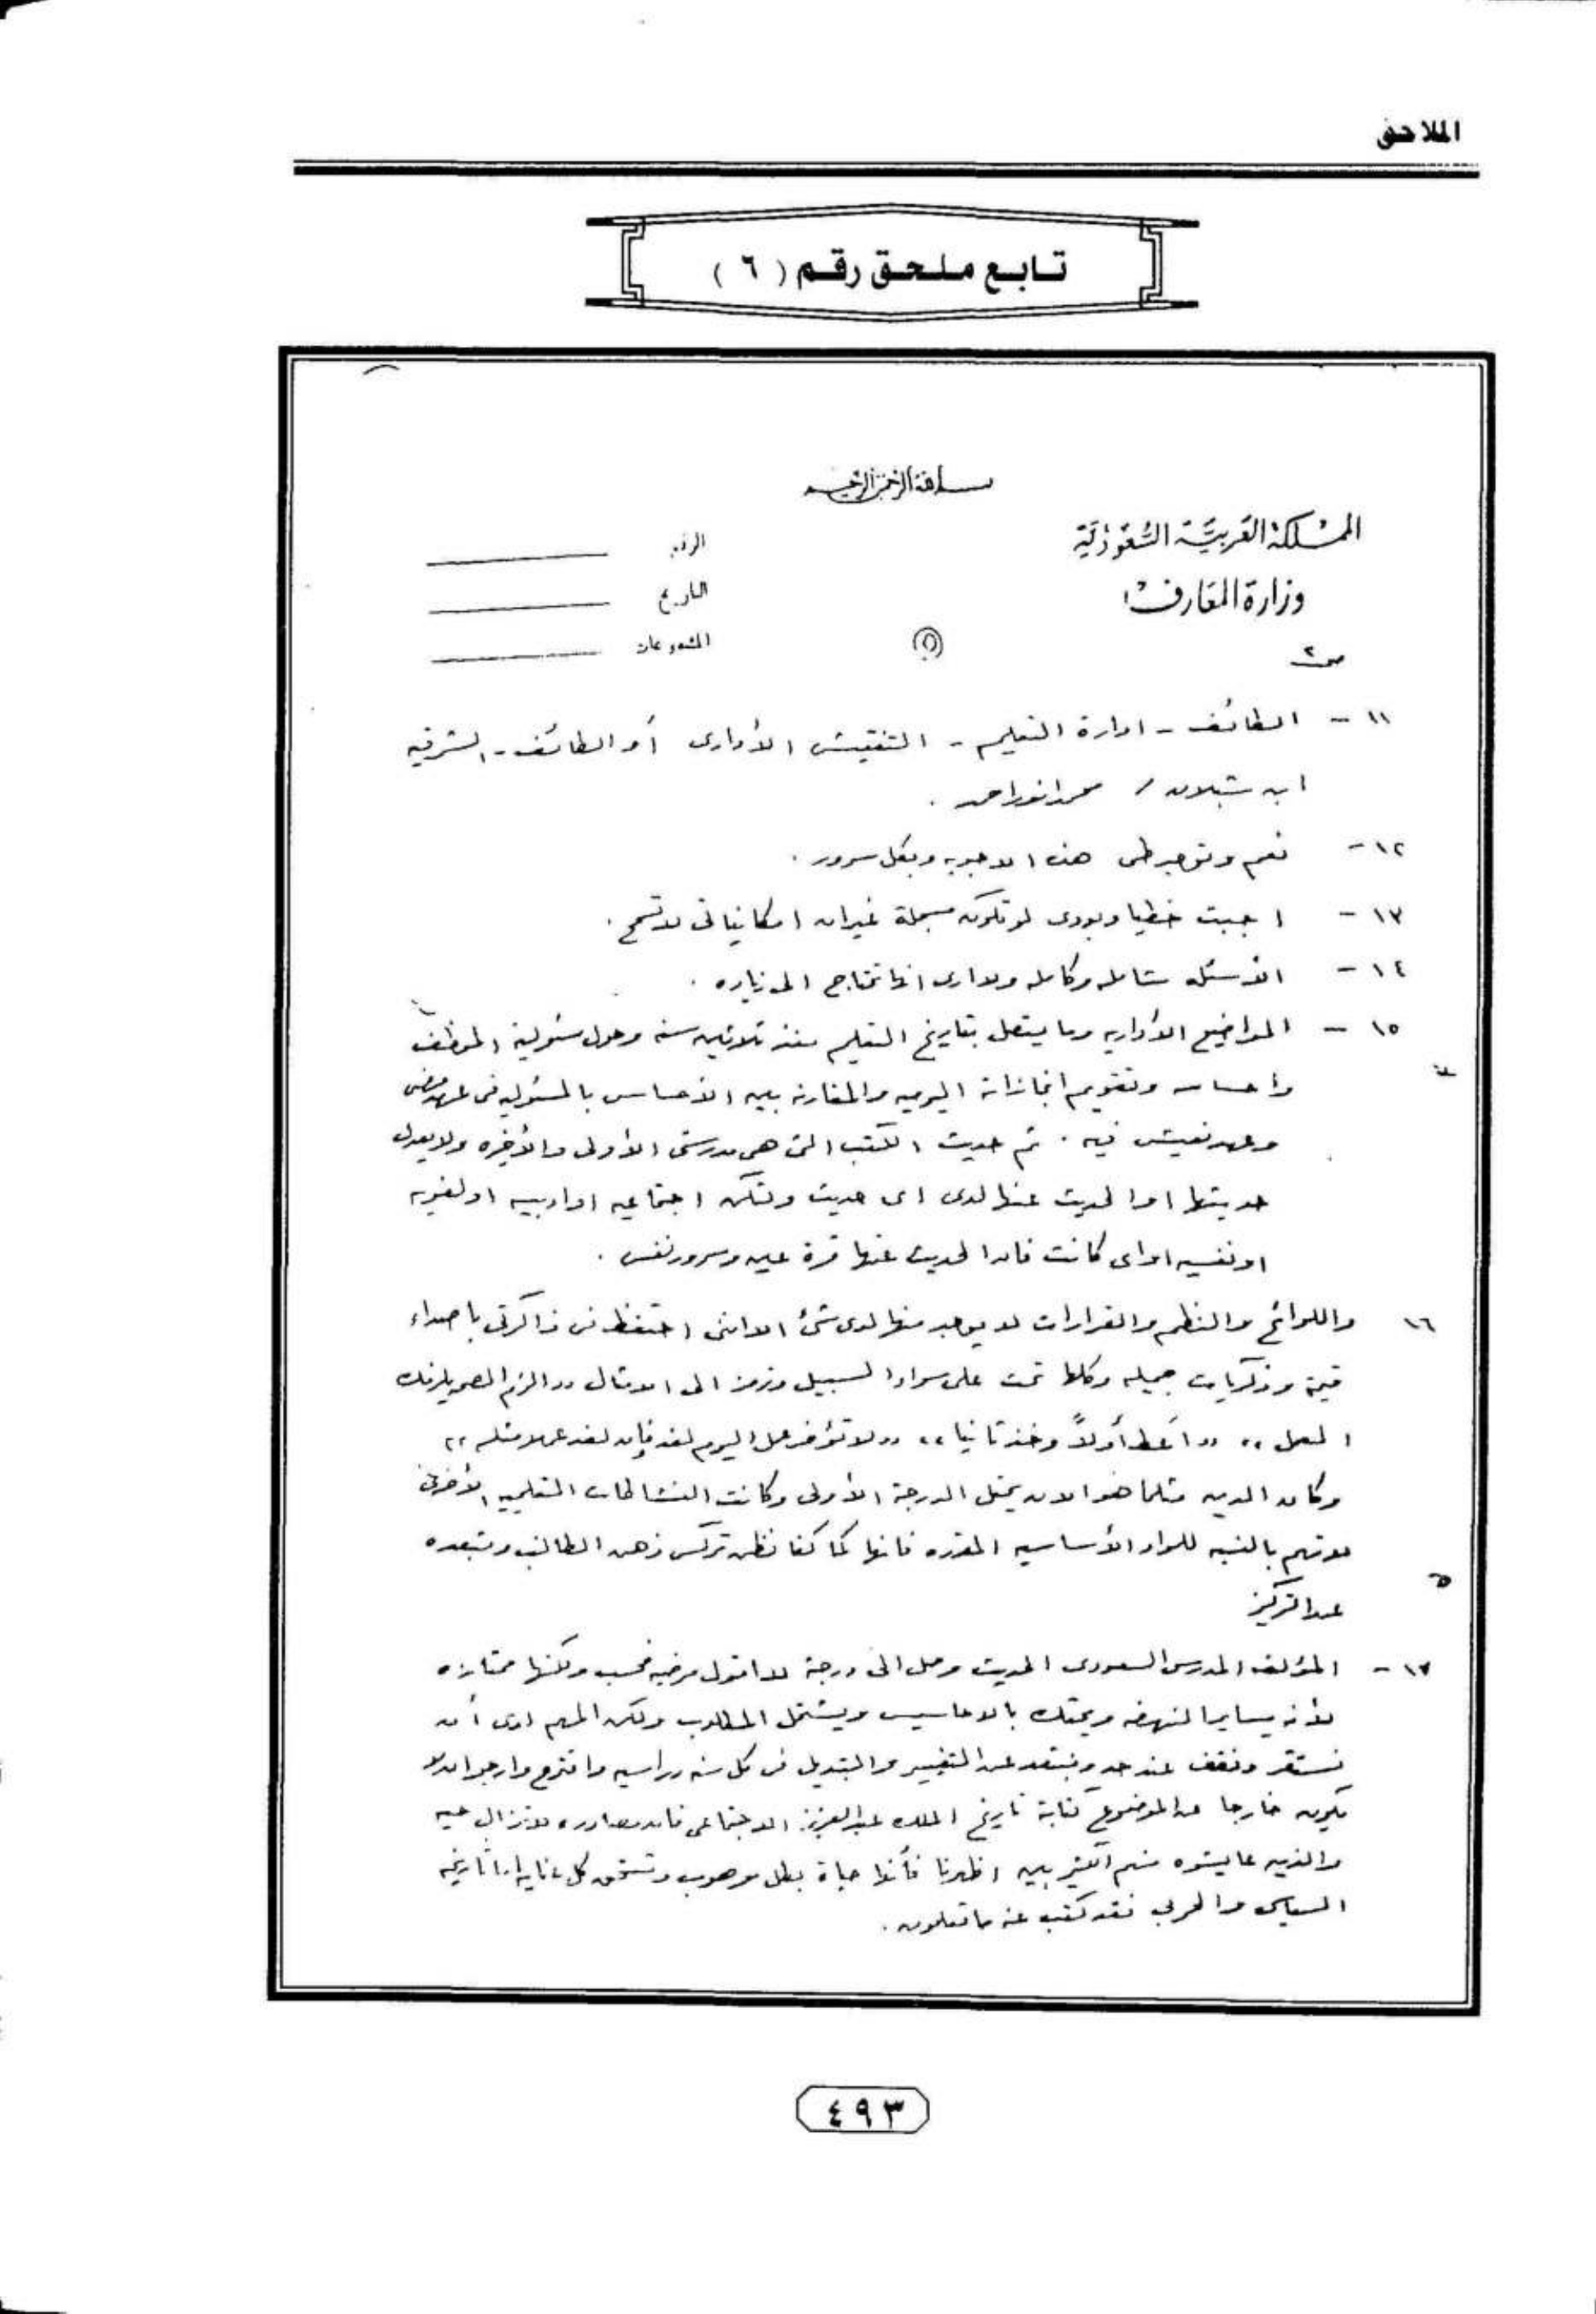 الملاحق
تابع ملحق رقم ( ٦ )
بسم الله الرحمن الرحيم
المملكة العربية السعودية
وزارة المعارف
الرقم
التاريخ
المشفوعات
ص ٢
١١ - الطائف - ادارة التعليم - التفتيش الأدارى أو الطائف - الشرقيه
ابن شبلان / محمد انور احمد .
١٢ - نعم وتوجد طى هذه الاجوبه وبكل سرور .
١٣ - اجبت خطيا وبودى لو تكون مسجلة غير ان امكانياتى لا تسمح .
١٤ - الأسئله شامله وكامله ولا ارى انها تحتاج الى زياده .
١٥ - المواضيع الأداريه وما يتصل بتاريخ التعليم منذ ثلاثين سنه وحول مسئولية الموظف
واحساسه وتقويم انجازاته اليوميه والمقارنه بين الأحساس بالمسئوليه فى عهد مضى
وعهد نعيش فيه . ثم حديث الكتب التى هى مدرستى الأولى والأخيره ولا يعدل
حديثها او الحديث عنها لدى اى حديث ولتكن اجتماعيه او ادبيه او لغويه
او نفسيه او اى كانت فان الحديث عنها قرة عين وسرور نفس .
١٦ واللوائح والنظم والقرارات لا يوجد منها لدى شئ الا اننى احتفظ فى ذاكرتى باصداء
قيمة وذكريات جميله وكلها تمت على سواء السبيل وترمز الى الامثال ,, الزم الصمت يلزمك
العمل ,, ,, اعط أولاً وخذ ثانيا ,, ,, لا تؤخر عمل اليوم لغد فإن لغد عملا مثله ,,
وكان الدين مثلما هو الان يحتل الدرجة الأولى وكانت النشاطات التعليميه الأخرى
لا تهم بالنسبه للمواد الأساسيه المقرره فانها كما كنا نظن تركس ذهن الطالب وتبعده
عن التركيز
١٧ - المؤلف المدرسى السعودى الحديث وصل الى درجة لا اقول مرضيه فحسب ولكنها ممتازه
لأنه يساير النهضه ويحتك بالاحاسيس ويشتمل المطلوب ولكن المهم لدى أن
نستقر ونقف عند حد ونبتعد عن التغيير والتبديل فى كل سنه دراسيه واقترح وارجو ان لا
يكون خارجا عن الموضوع كتابة تاريخ الملك عبد العزيز الاجتماعى فان مصادره لا تزال حيه
والذين عايشوه منهم الكثير بين اظهرنا فأنها حياة بطل موهوب وتستحق كل عنايه اما تاريخه
السياسى والحربى فقد كتب عنه ما تعلمون .
٤٩٣